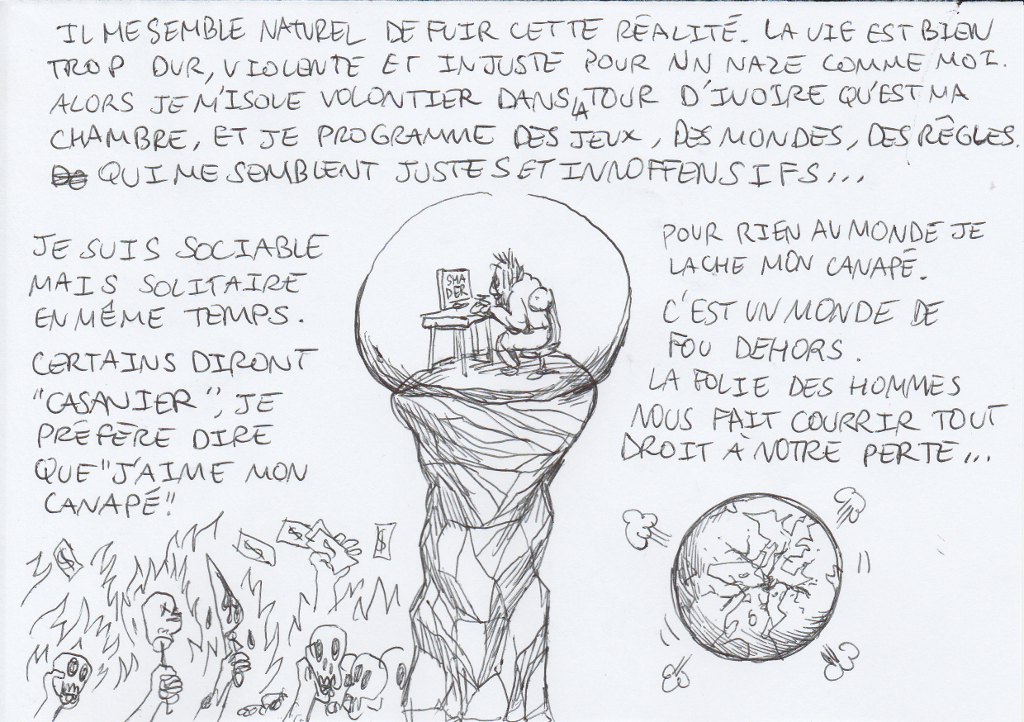 IL ME SEMBLE NATUREL DE FUIR CETTE RÉALITÉ. LA VIE EST BIEN
TROP DUR, VIOLENTE ET INJUSTE POUR UN NAZE COMME MOI.
ALORS JE M'ISOLE VOLONTIER DANS LA TOUR D'IVOIRE QU'EST MA
CHAMBRE, ET JE PROGRAMME DES JEUX, DES MONDES, DES RÊGLES.
QUI ME SEMBLENT JUSTES ET INNOFFENSIFS...
JE SUIS SOCIABLE
MAIS SOLITAIRE
EN MÊME TEMPS.
CERTAINS DIRONT
"CASANIER", JE
PRÉFÉRE DIRE
QUE "J'AIME MON
CANAPÉ"!
SHA
DER
POUR RIEN AU MONDE JE
LACHE MON CANAPÉ.
C'EST UN MONDE DE
FOU DEHORS.
LA FOLIE DES HOMMES
NOUS FAIT COURRIR TOUT
DROIT À NOTRE PERTE...
$
$
$
$